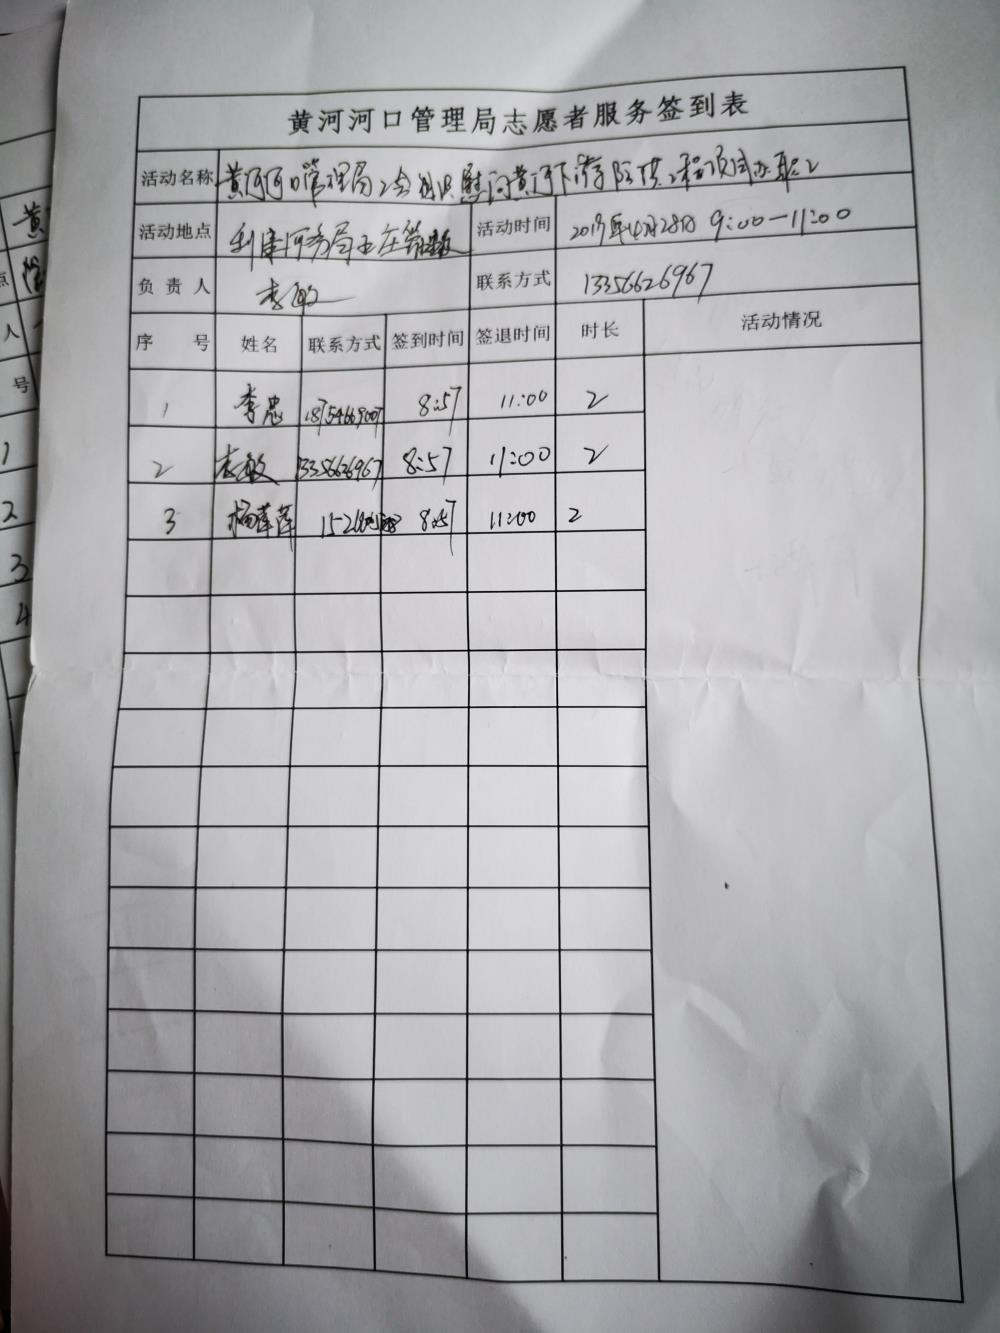 黄河河口管理局志愿者服务签到表
活动名称 黄河河口管理局工会组织慰问黄河下游防洪工程项目办职工
活动地点 利津河务局王庄管理段 活动时间 2019年4月28日 9:00—11:00
负责人 李敏 联系方式 13356626967
序号 姓名 联系方式 签到时间 签退时间 时长 活动情况
1 李忠 18754669007 8:57 11:00 2
2 李敏 13356626967 8:57 11:00 2
3 杨萍萍 8:57 11:00 2
黄
点
人
号
1
2
3
4